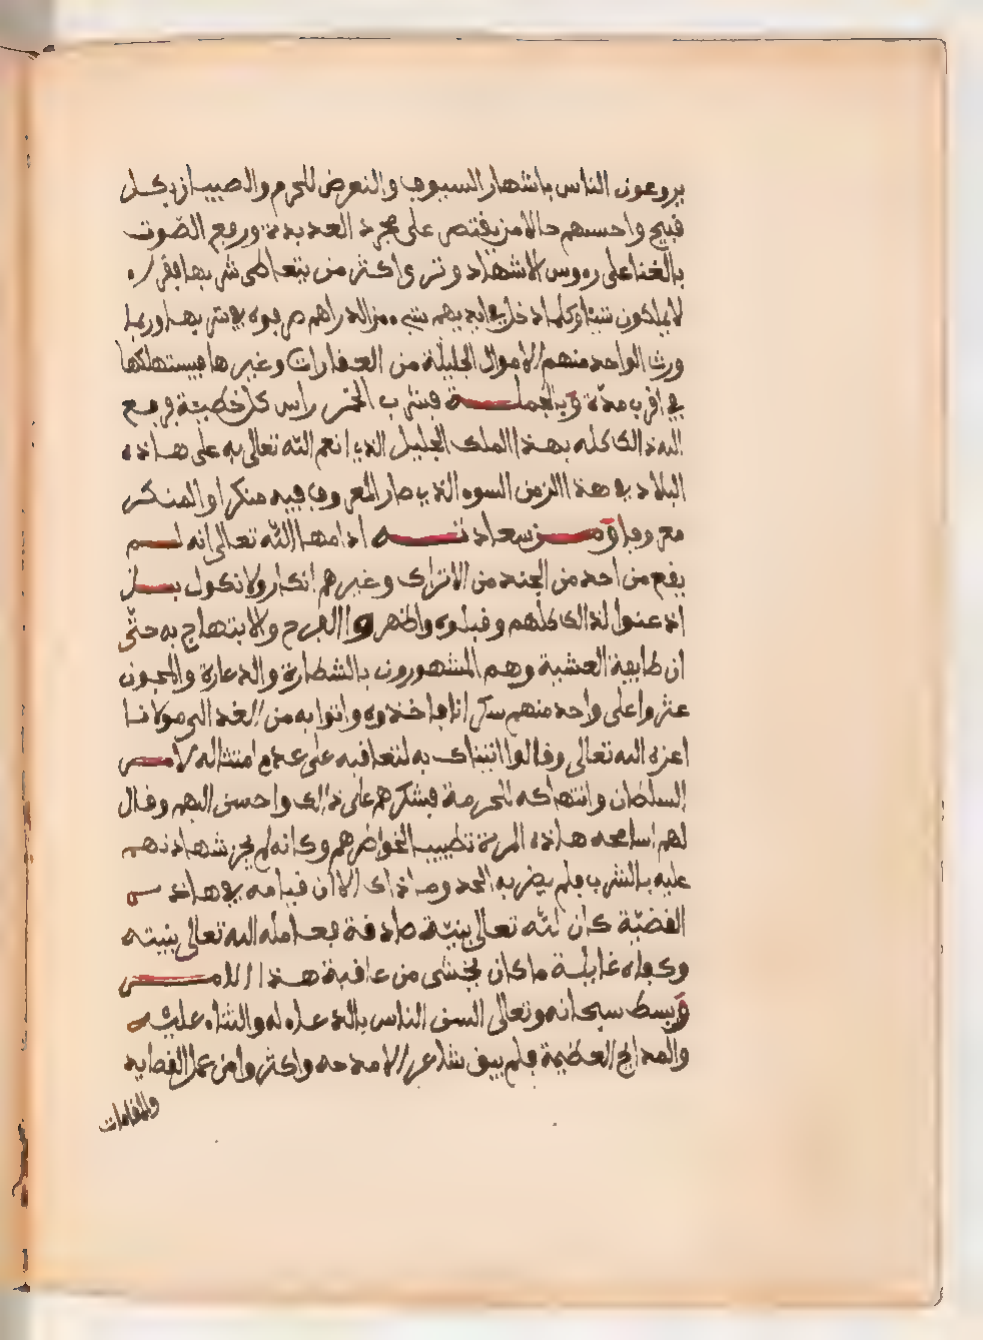 يروعون الناس باشهار السيوف والتعرض للحرم والصبيان بكل
قبيح واحسنهم حالا من يقتصر على مجرد العربدة ورفع الصوت
بالغنا على رءوس الاشهاد وترى اكثر من يتعاطى شربها فقراء
لا يملكون شيئا وكلما دخل في ايديهم شيء من الدراهم صرفوه في شربها وربما
ورث الواحد منهم الاموال الجليلة من العقارات وغيرها فيستهلكها
في اقرب مدة وبالجملة فشرب الخمر راس كل خطيئة فرفع
الله ذالك كله بهذا الملك الجليل الذي انعم الله تعالى به على هاذه
البلاد في هذا الزمن السوء الذي صار المعروف فيه منكرا والمنكر
معروفا ومن سعادته ادامها الله تعالى انه لم
يقع من احد من الجند من الاتراك وغيرهم انكار ولا نكول بل
اذعنوا لذالك كلهم وقبلوه واظهروا الفرح والابتهاج به حتى
ان طايفة العشبة وهم المشهورون بالشطارة والدعارة والمجون
عثروا على واحد منهم سكرانا فاخذوه واتوا به من الغد الى مولانا
اعزه الله تعالى وقالوا اتيناك به لتعاقبه على عدم امتثاله لامر
السلطان وانتهاكه للحرمة فشكرهم على ذالك واحسن اليهم وقال
لهم اسامحه هاذه المرة تطييبا لخواطرهم وكانه لم يجز شهادتهم
عليه بالشرب فلم يضربه الحد وما ذاك الا ان قيامه في هاذه
القضية كان لله تعالى بنية صادقة فعامله الله تعالى بنيته
وكفاه غايلة ما كان يخشى من عاقبة هذا الامر
وبسط سبحانه وتعالى السن الناس بالدعاء له والثناء عليه
والمدايح العظيمة فلم يبق شاعر الا مدحه واكثروا من عمل القصايد
والمقامات